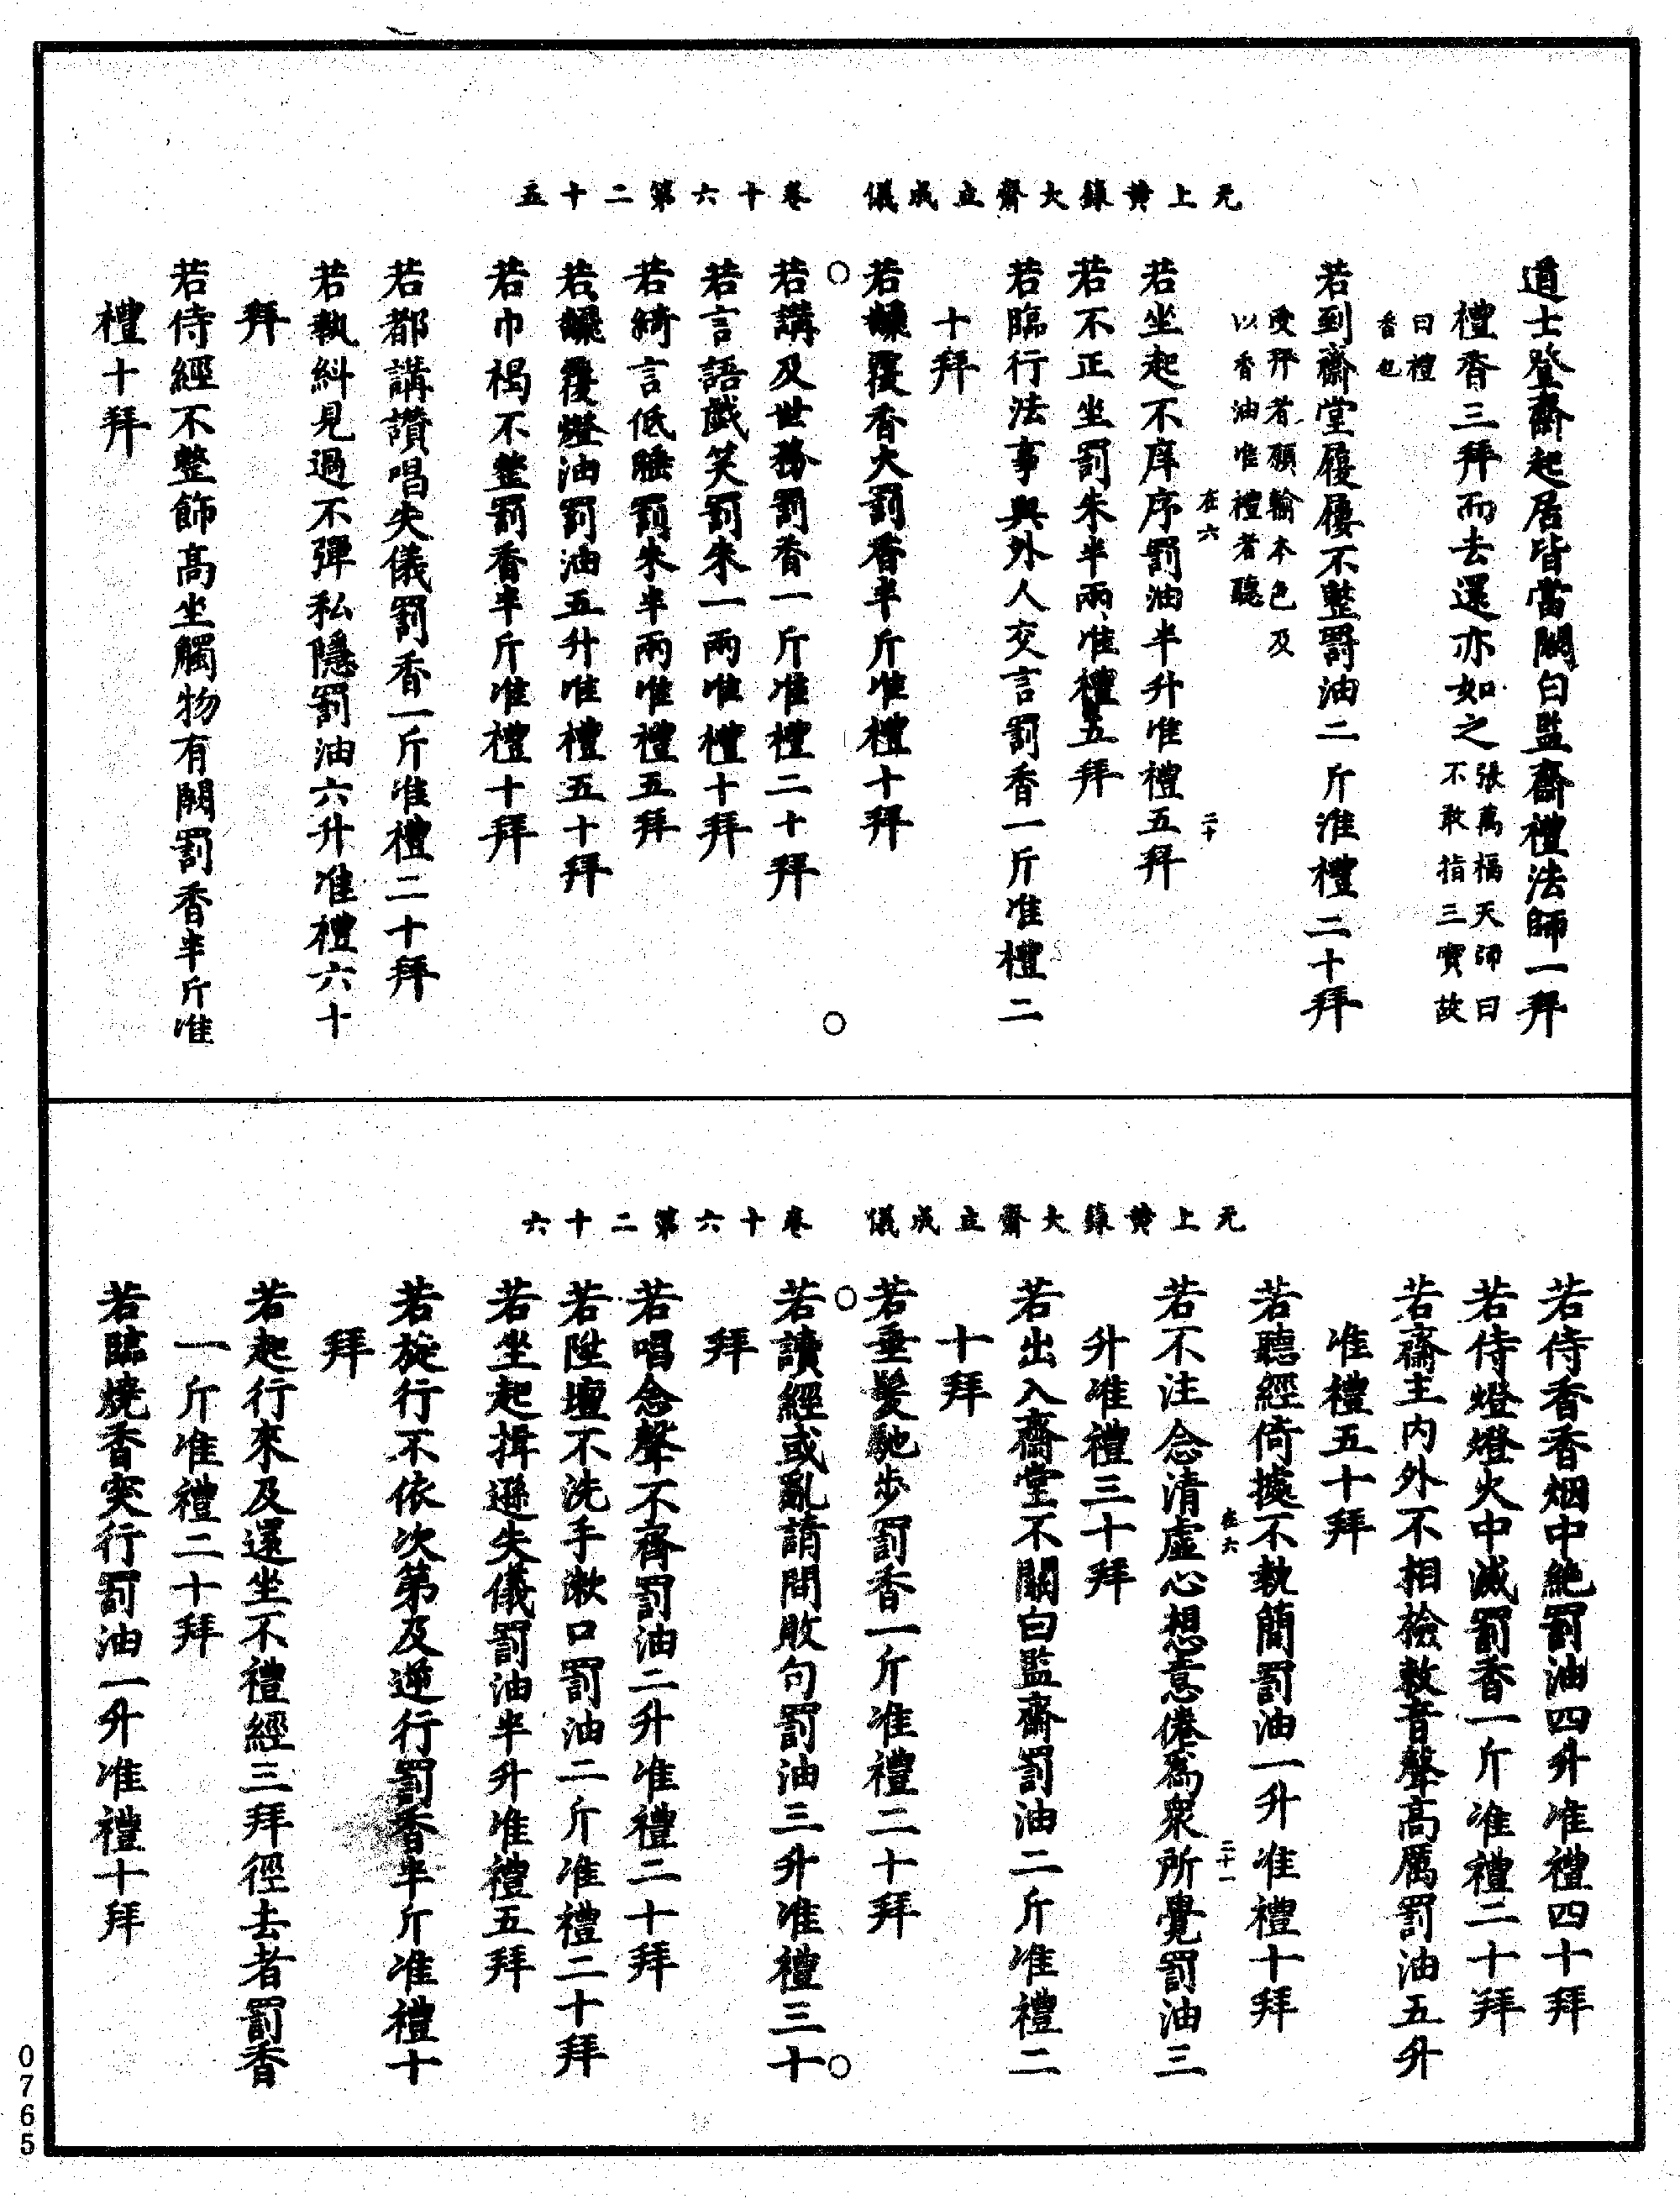 元上黃籙大齋立成儀　卷十六第二十五
道士登齋起居皆當關白監齋禮法師一拜
禮香三拜而去還亦如之張萬福天師曰
不敢指三寶故
曰禮
香也
若到齋堂履屨不整罰油二斤准禮二十拜
受拜者願輸本色及
以香油准禮者聽
在六
二十
若坐起不庠序罰油半升准禮五拜
若不正坐罰朱半兩准禮五拜
若臨行法事與外人交言罰香一斤准禮二
十拜
若躶覆香火罰香半斤准禮十拜
若講及世務罰香一斤准禮二十拜
若言語戲笑罰朱一兩准禮十拜
若綺言低睡罰朱半兩准禮五拜
若躶覆燈油罰油五升准禮五十拜
若巾褐不整罰香半斤准禮十拜
若都講讚唱失儀罰香一斤准禮二十拜
若執糾見過不彈私隱罰油六升准禮六十
拜
若侍經不整飾高坐觸物有闕罰香半斤准
禮十拜
元上黃籙大齋立成儀　卷十六第二十六
若侍香香烟中絶罰油四升准禮四十拜
若侍燈燈火中滅罰香一斤准禮二十拜
若齋主內外不相撿敕音聲高厲罰油五升
准禮五十拜
若聽經倚據不執簡罰油一升准禮十拜
在六
二十一
若不注念清虛心想意倦爲衆所覺罰油三
升准禮三十拜
若出入齋堂不關白監齋罰油二斤准禮二
十拜
若垂髮馳步罰香一斤准禮二十拜
若讀經或亂請間敗句罰油三升准禮三十
拜
若唱念聲不齊罰油二升准禮二十拜
若陞壇不洗手漱口罰油二斤准禮二十拜
若坐起揖遜失儀罰油半升准禮五拜
若旋行不依次第及逆行罰香半斤准禮十
拜
若起行來及還坐不禮經三拜徑去者罰香
一斤准禮二十拜
若臨燒香突行罰油一升准禮十拜
0765